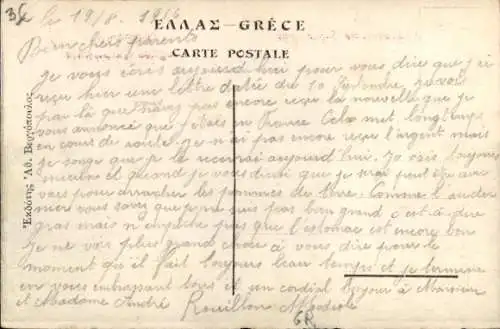 36 le 19/8 1916
ΕΛΛΑΣ—GRÈCE
Bien chers parents
CARTE POSTALE
Je vous écris aujourd'hui pour vous dire que j'ai
reçu hier une lettre datée du 10 Septembre je vois
par là que n'avez pas encore reçu la nouvelle que je
vous annonce que j'étais en France Cela met longtemps
en cours de route. Je n'ai pas encore reçu l'argent mais
je songe que je le recevrai aujourd'hui. Je vais toujours
mieux et quand je vous disais que je serai peut être
vous pour arracher les pommes de terre. Comme l'an der
nier vous savez que je ne suis pas bien grand c'est à dire
gras mais n'empêche pas que l'estomac est encore bon
Je ne vois plus grand chose à vous dire pour le
moment qu'il fait toujours beau temps et je termine
en vous embrassant tous et un cordial Bonjour à Monsieur
et Madame André Rouillon
Ἐκδότης Ἀθ. Βεργόπουλος